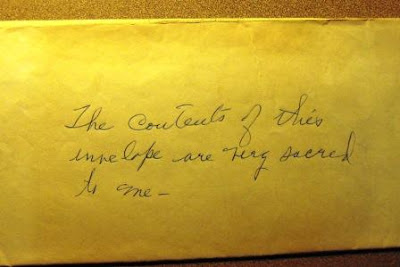 The contents of this
invelope are very sacred
to me -